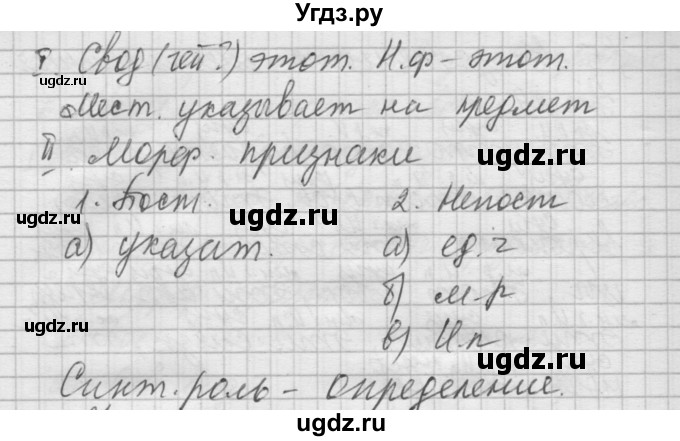 Угдз.ру
I Свод (чей?) этот. Н.ф – этот.
Мест. указывает на предмет
II Морф. признаки
1. Пост. 2. Непост
а) указат. а) ед. ч
б) м.р
в) И.п
Синт. роль – определение.
ugdz.ru
ugdz.ru
ugdz.ru
ugdz.ru
ugdz.ru
ugdz.ru
ugdz.ru
ugdz.ru
ugdz.ru
ugdz.ru
ugdz.ru